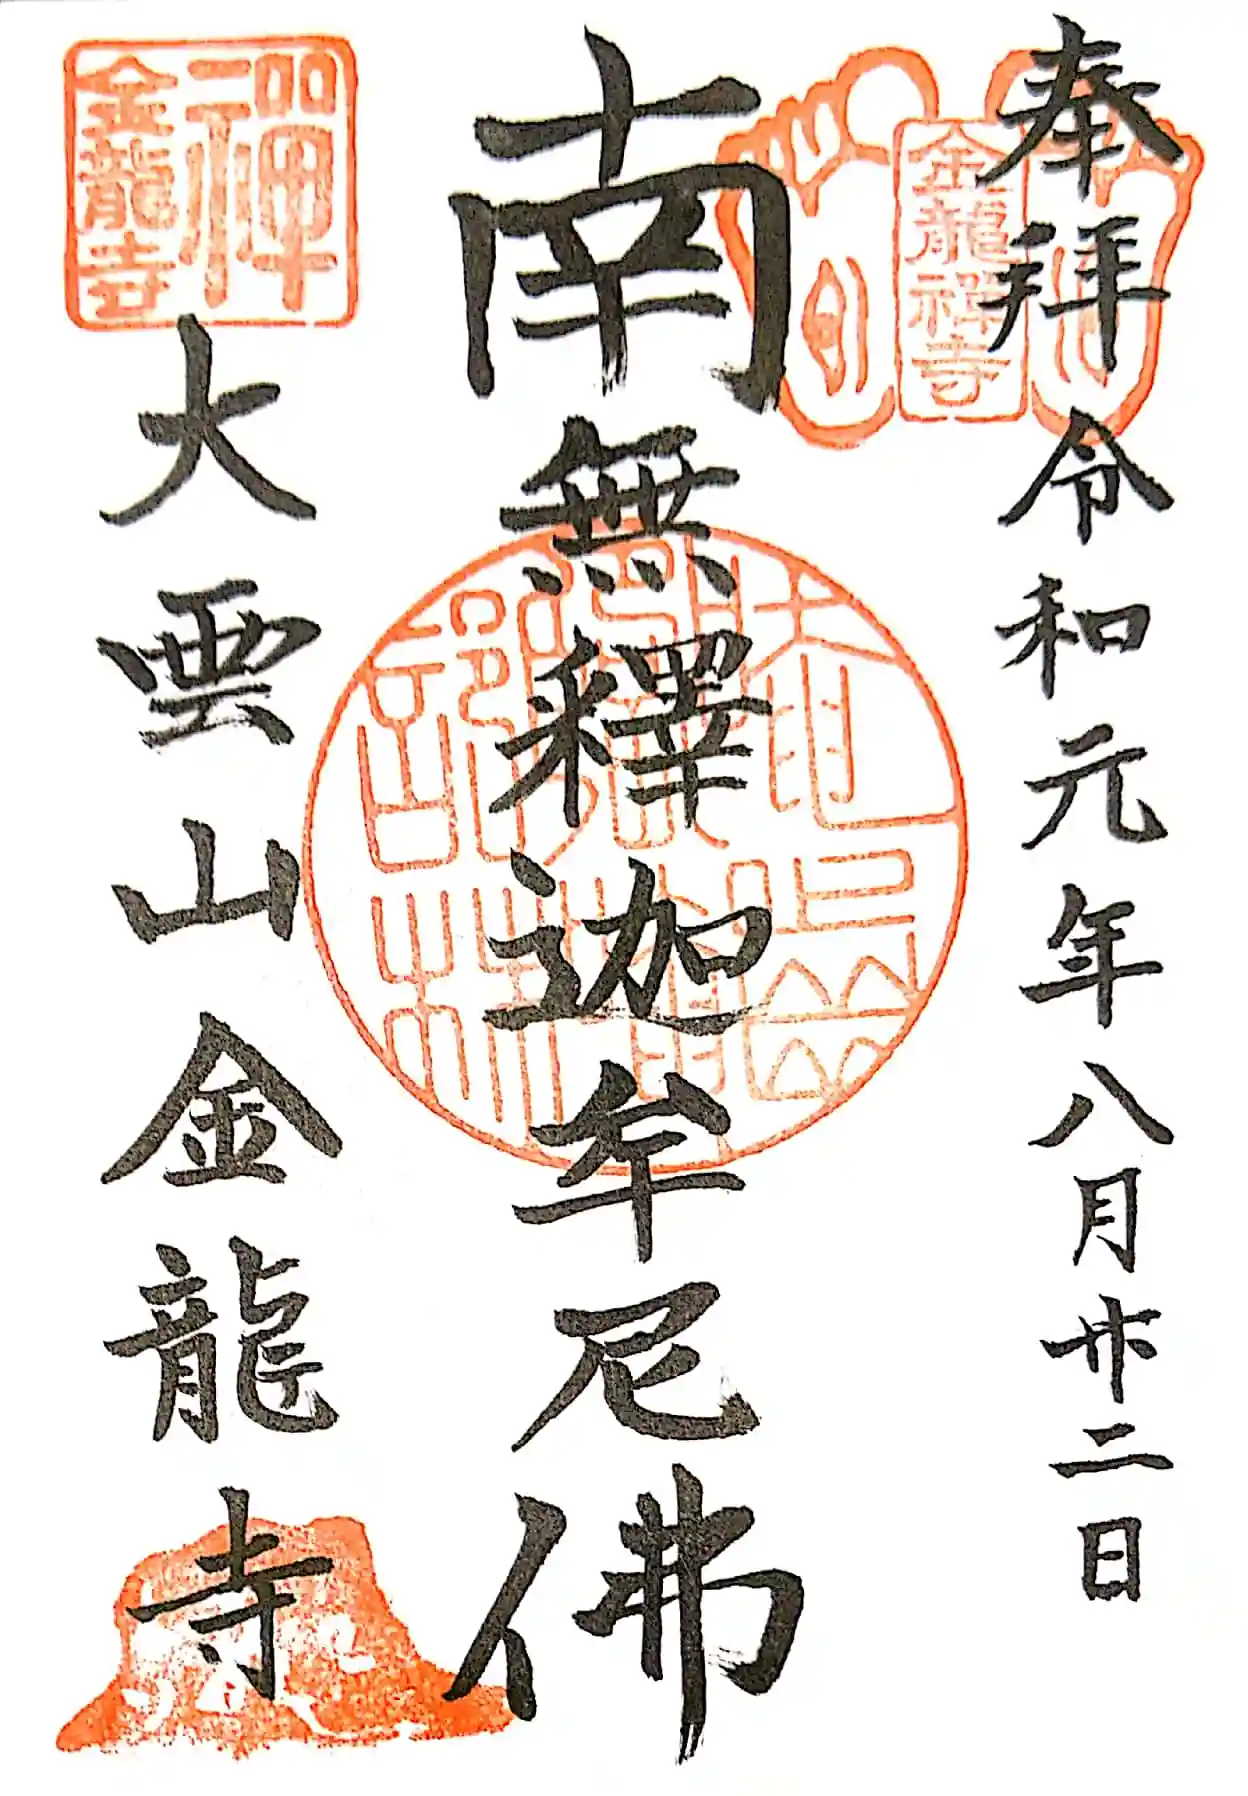 奉拝 令和元年八月廿二日
金龍禅寺
南無釋迦牟尼佛
禅
金龍寺
大雲山金龍寺